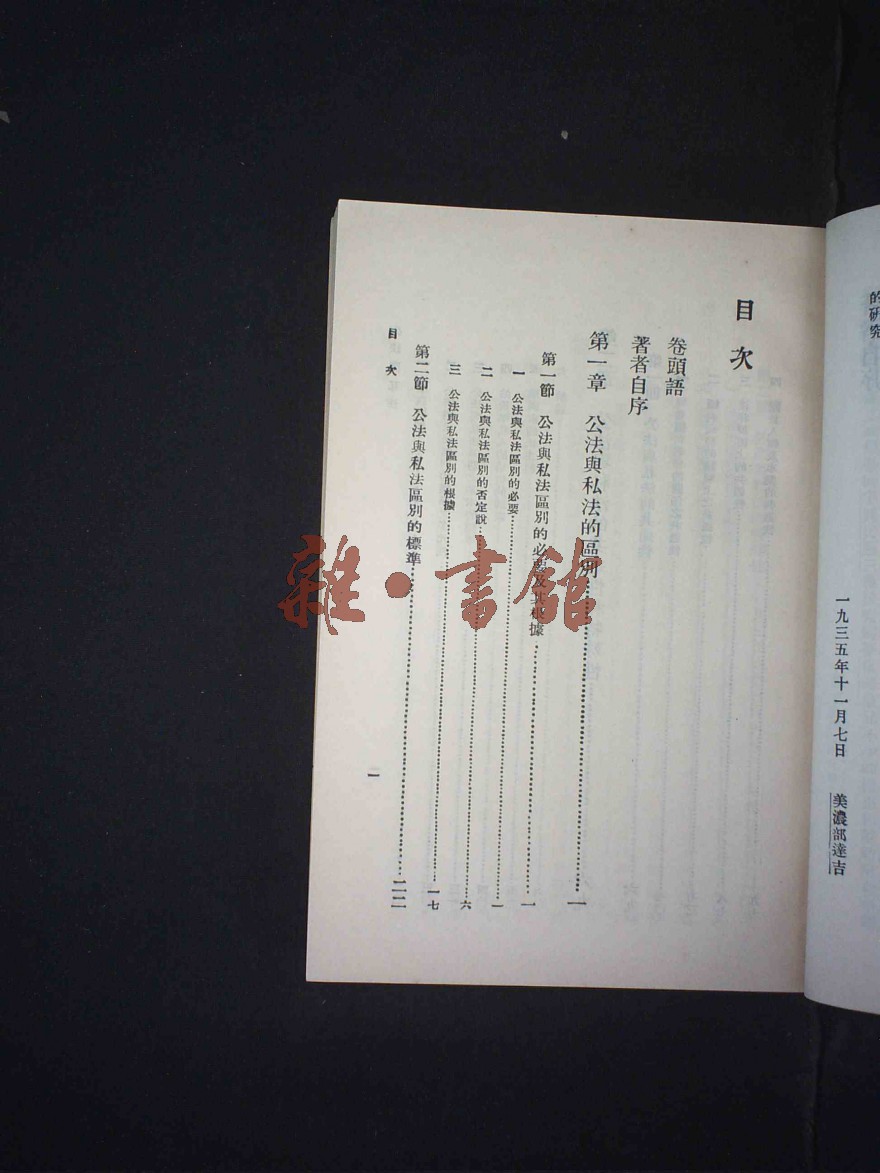 的研究
一九三五年十一月七日 美濃部達吉
目次
卷頭語
著者自序
第一章 公法與私法的區別……一
第一節 公法與私法區別的必要及其根據……一
一 公法與私法區別的必要……一
二 公法與私法區別的否定說……六
三 公法與私法區別的根據……一七
第二節 公法與私法區別的標準……二二
目次
一
雜·書館